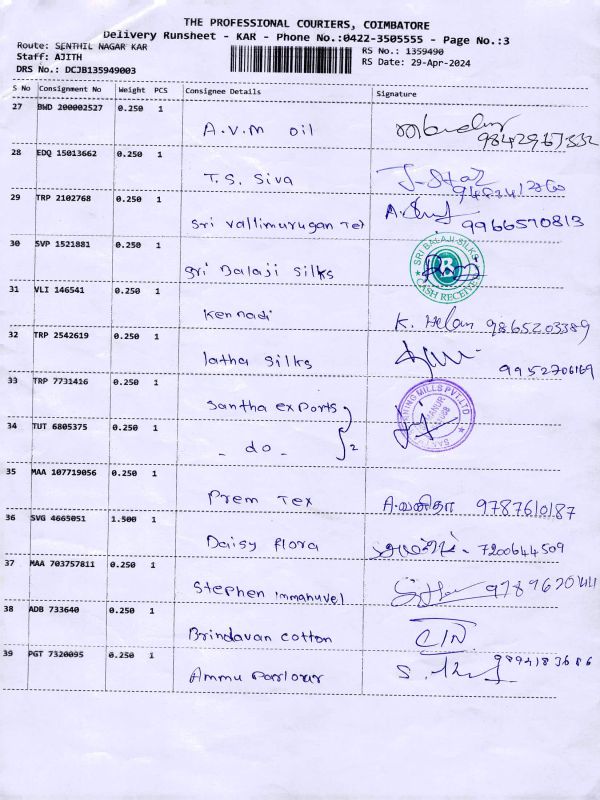 THE PROFESSIONAL COURIERS, COIMBATORE
Delivery Runsheet - KAR - Phone No.:0422-3505555 - Page No.:3
Route: SENTHIL NAGAR KAR
RS No.: 1359490
Staff: AJITH
RS Date: 29-Apr-2024
DRS No.: DCJB135949003
S No Consignment No Weight PCS Consignee Details Signature
27 BWD 200002527 0.250 1
A.V.M oil
28 EDQ 15013662 0.250 1
T.S. Siva
29 TRP 2102768 0.250 1
Sri Vallimurugan Tex 9966570813
30 SVP 1521881 0.250 1
Sri Balaji Silks
SRI BALAJI SILKS
CASH RECEIVE
31 VLI 146541 0.250 1
Kennadi K. Helan 9865203389
32 TRP 2542619 0.250 1
latha Silks 9952706169
33 TRP 7731416 0.250 1
Santha exports
34 TUT 6805375 0.250 1
- do - 2
35 MAA 107719056 0.250 1
Prem Tex A.வனிதா 9787610187
36 SVG 4665051 1.500 1
Daisy flora 7200644509
37 MAA 703757811 0.250 1
Stephen Immanuvel
38 ADB 733640 0.250 1
Brindavan cotton
39 PGT 7320095 0.250 1
Ammu Parlour 9894183686